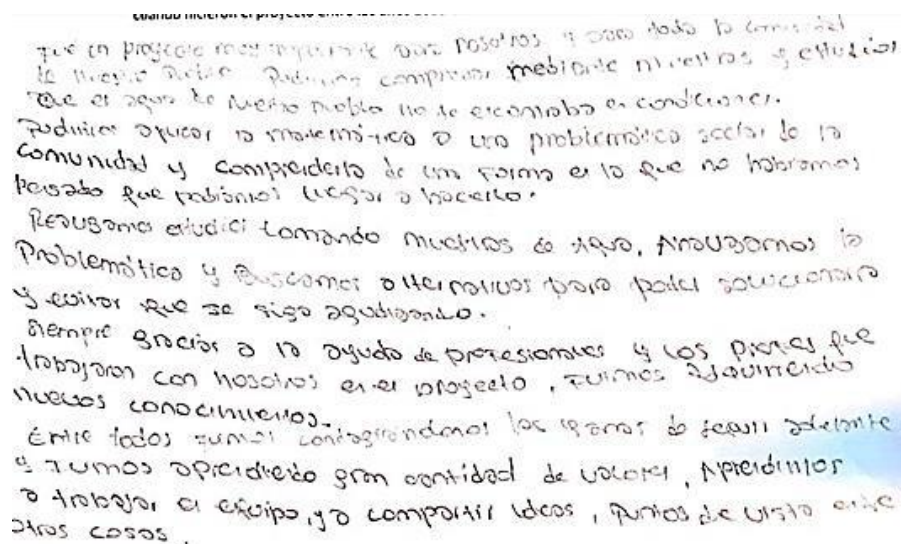 cuando hicieron el proyecto entre los años
fue un proyecto muy importante para nosotros y para toda la comunidad
de nuestro Pudimos comprobar mediante muestras y estudios
que el agua de nuestro pueblo no se encontraba en condiciones.
Pudimos aplicar la matemática a una problemática social de la
comunidad y comprenderla de una forma en la que no habíamos
pensado que podíamos llegar a hacerlo.
Realizamos estudios tomando muestras de agua, Analizamos la
Problemática y Buscamos alternativas para poder solucionarla
y evitar que se siga agudizando.
Siempre gracias a la ayuda de profesionales y los que
trabajaron con nosotros en el proyecto, Fuimos adquiriendo
nuevos conocimientos.
Entre todos fuimos contagiándonos las ganas de seguir adelante
y fuimos aprendiendo gran cantidad de valores, Aprendimos
a trabajar en equipo, y a compartir ideas, puntos de vista entre
otras cosas.